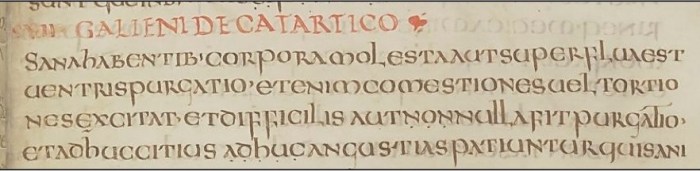 GALIENI DE CATARTICO
SANA HABENTIB· CORPORA MOLESTA AUT SUPERFLUA EST
UENTRIS PURGATIO· ETENIM COMESTIONES UEL TORTIO
NES EXCITAT· ET DIFFICILIS AUT NON NULLA FIT PURGATIO·
ET ADBUC CITIUS ADBUC ANGUSTIAS PATIUNTUR QUI SANI